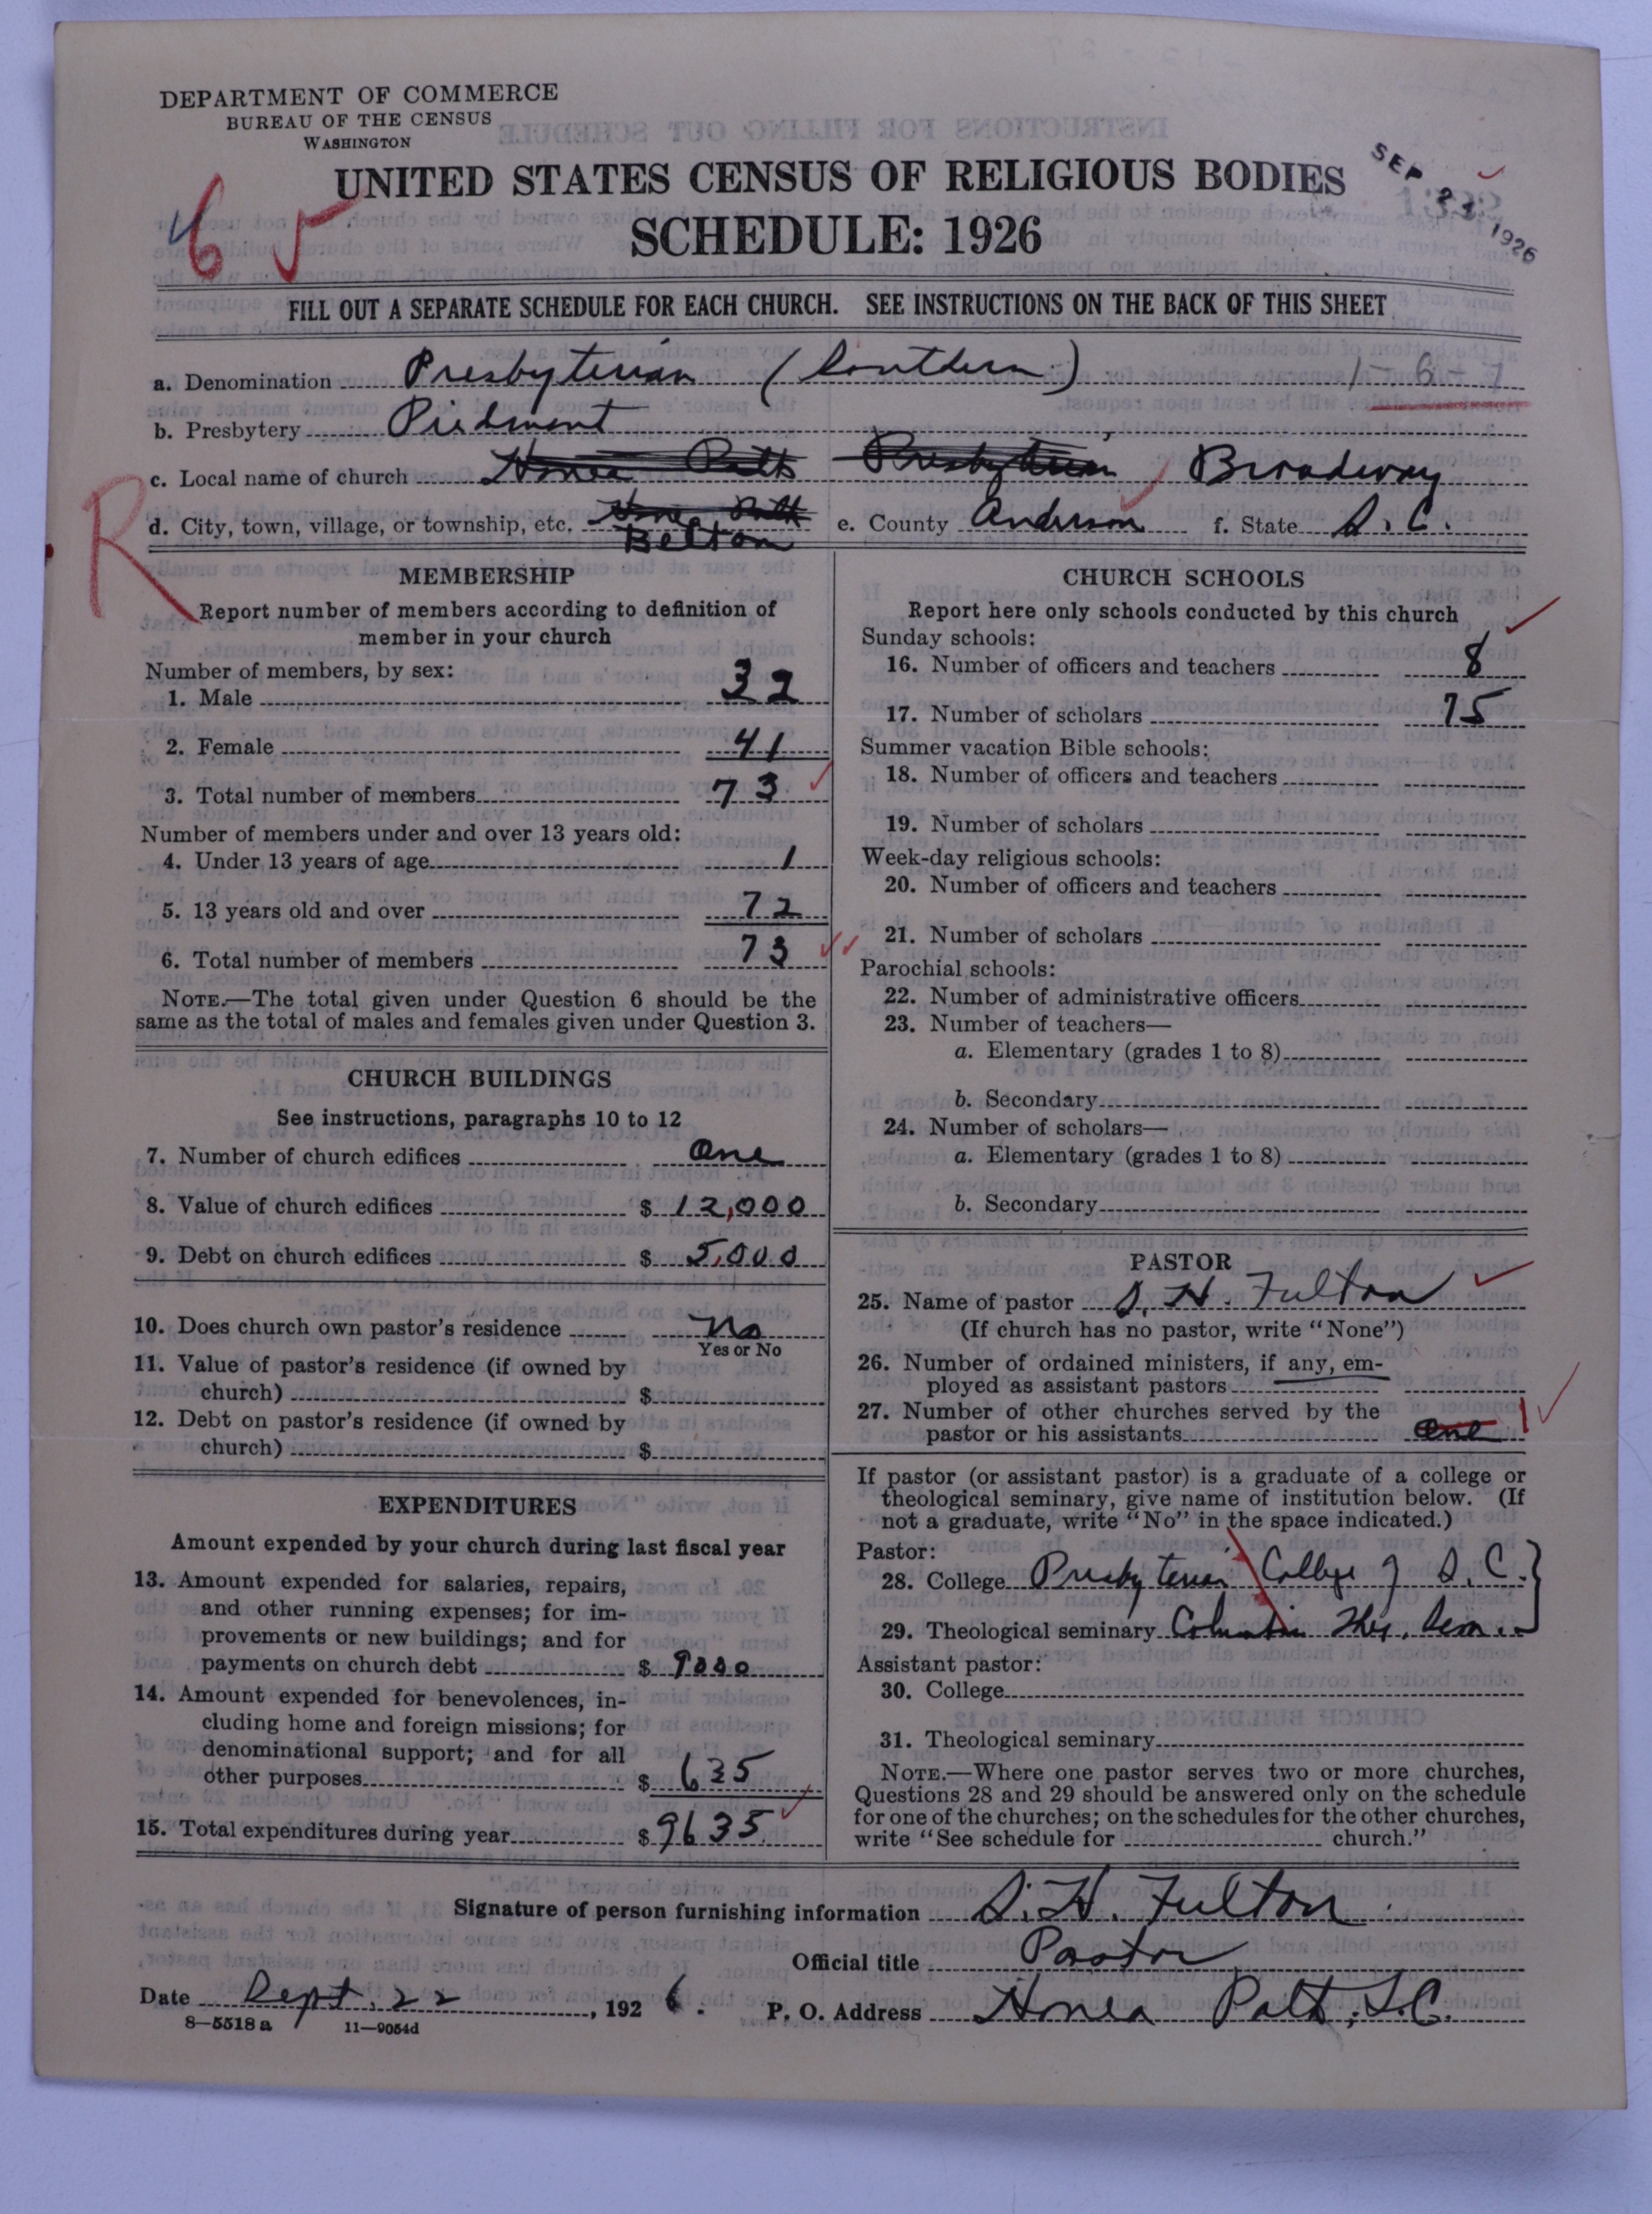 DEPARTMENT OF COMMERCE
BUREAU OF THE CENSUS
WASHINGTON
UNITED STATES CENSUS OF RELIGIOUS BODIES
SCHEDULE: 1926
SEP 23 1926
65
FILL OUT A SEPARATE SCHEDULE FOR EACH CHURCH. SEE INSTRUCTIONS ON THE BACK OF THIS SHEET
a. Denomination Presbyterian (Southern) 1-6-7
b. Presbytery Piedmont
c. Local name of church Honea Path Presbyterian Broadway
d. City, town, village, or township, etc. Honea Path Belton e. County Anderson f. State S.C.
R
MEMBERSHIP
Report number of members according to definition of
member in your church
Number of members, by sex:
1. Male 32
2. Female 41
3. Total number of members 73
Number of members under and over 13 years old:
4. Under 13 years of age 1
5. 13 years old and over 72
6. Total number of members 73
NOTE.—The total given under Question 6 should be the
same as the total of males and females given under Question 3.
CHURCH BUILDINGS
See instructions, paragraphs 10 to 12
7. Number of church edifices One
8. Value of church edifices $ 12,000
9. Debt on church edifices $ 5,000
10. Does church own pastor's residence No
Yes or No
11. Value of pastor's residence (if owned by
church) $
12. Debt on pastor's residence (if owned by
church) $
EXPENDITURES
Amount expended by your church during last fiscal year
13. Amount expended for salaries, repairs,
and other running expenses; for im-
provements or new buildings; and for
payments on church debt $ 9000
14. Amount expended for benevolences, in-
cluding home and foreign missions; for
denominational support; and for all
other purposes $ 635
15. Total expenditures during year $ 9635
CHURCH SCHOOLS
Report here only schools conducted by this church
Sunday schools:
16. Number of officers and teachers 8
17. Number of scholars 75
Summer vacation Bible schools:
18. Number of officers and teachers
19. Number of scholars
Week-day religious schools:
20. Number of officers and teachers
21. Number of scholars
Parochial schools:
22. Number of administrative officers
23. Number of teachers—
a. Elementary (grades 1 to 8)
b. Secondary
24. Number of scholars—
a. Elementary (grades 1 to 8)
b. Secondary
PASTOR
25. Name of pastor S. H. Fulton
(If church has no pastor, write "None")
26. Number of ordained ministers, if any, em-
ployed as assistant pastors
27. Number of other churches served by the
pastor or his assistants one 1
If pastor (or assistant pastor) is a graduate of a college or
theological seminary, give name of institution below. (If
not a graduate, write "No" in the space indicated.)
Pastor:
28. College Presbyterian College of S.C.
29. Theological seminary Columbia The. Sem.
Assistant pastor:
30. College
31. Theological seminary
NOTE.—Where one pastor serves two or more churches,
Questions 28 and 29 should be answered only on the schedule
for one of the churches; on the schedules for the other churches,
write "See schedule for church."
Signature of person furnishing information S. H. Fulton
Official title Pastor
Date Sept. 22, 1926. P. O. Address Honea Path, S.C.
8—5518 a 11—9054d